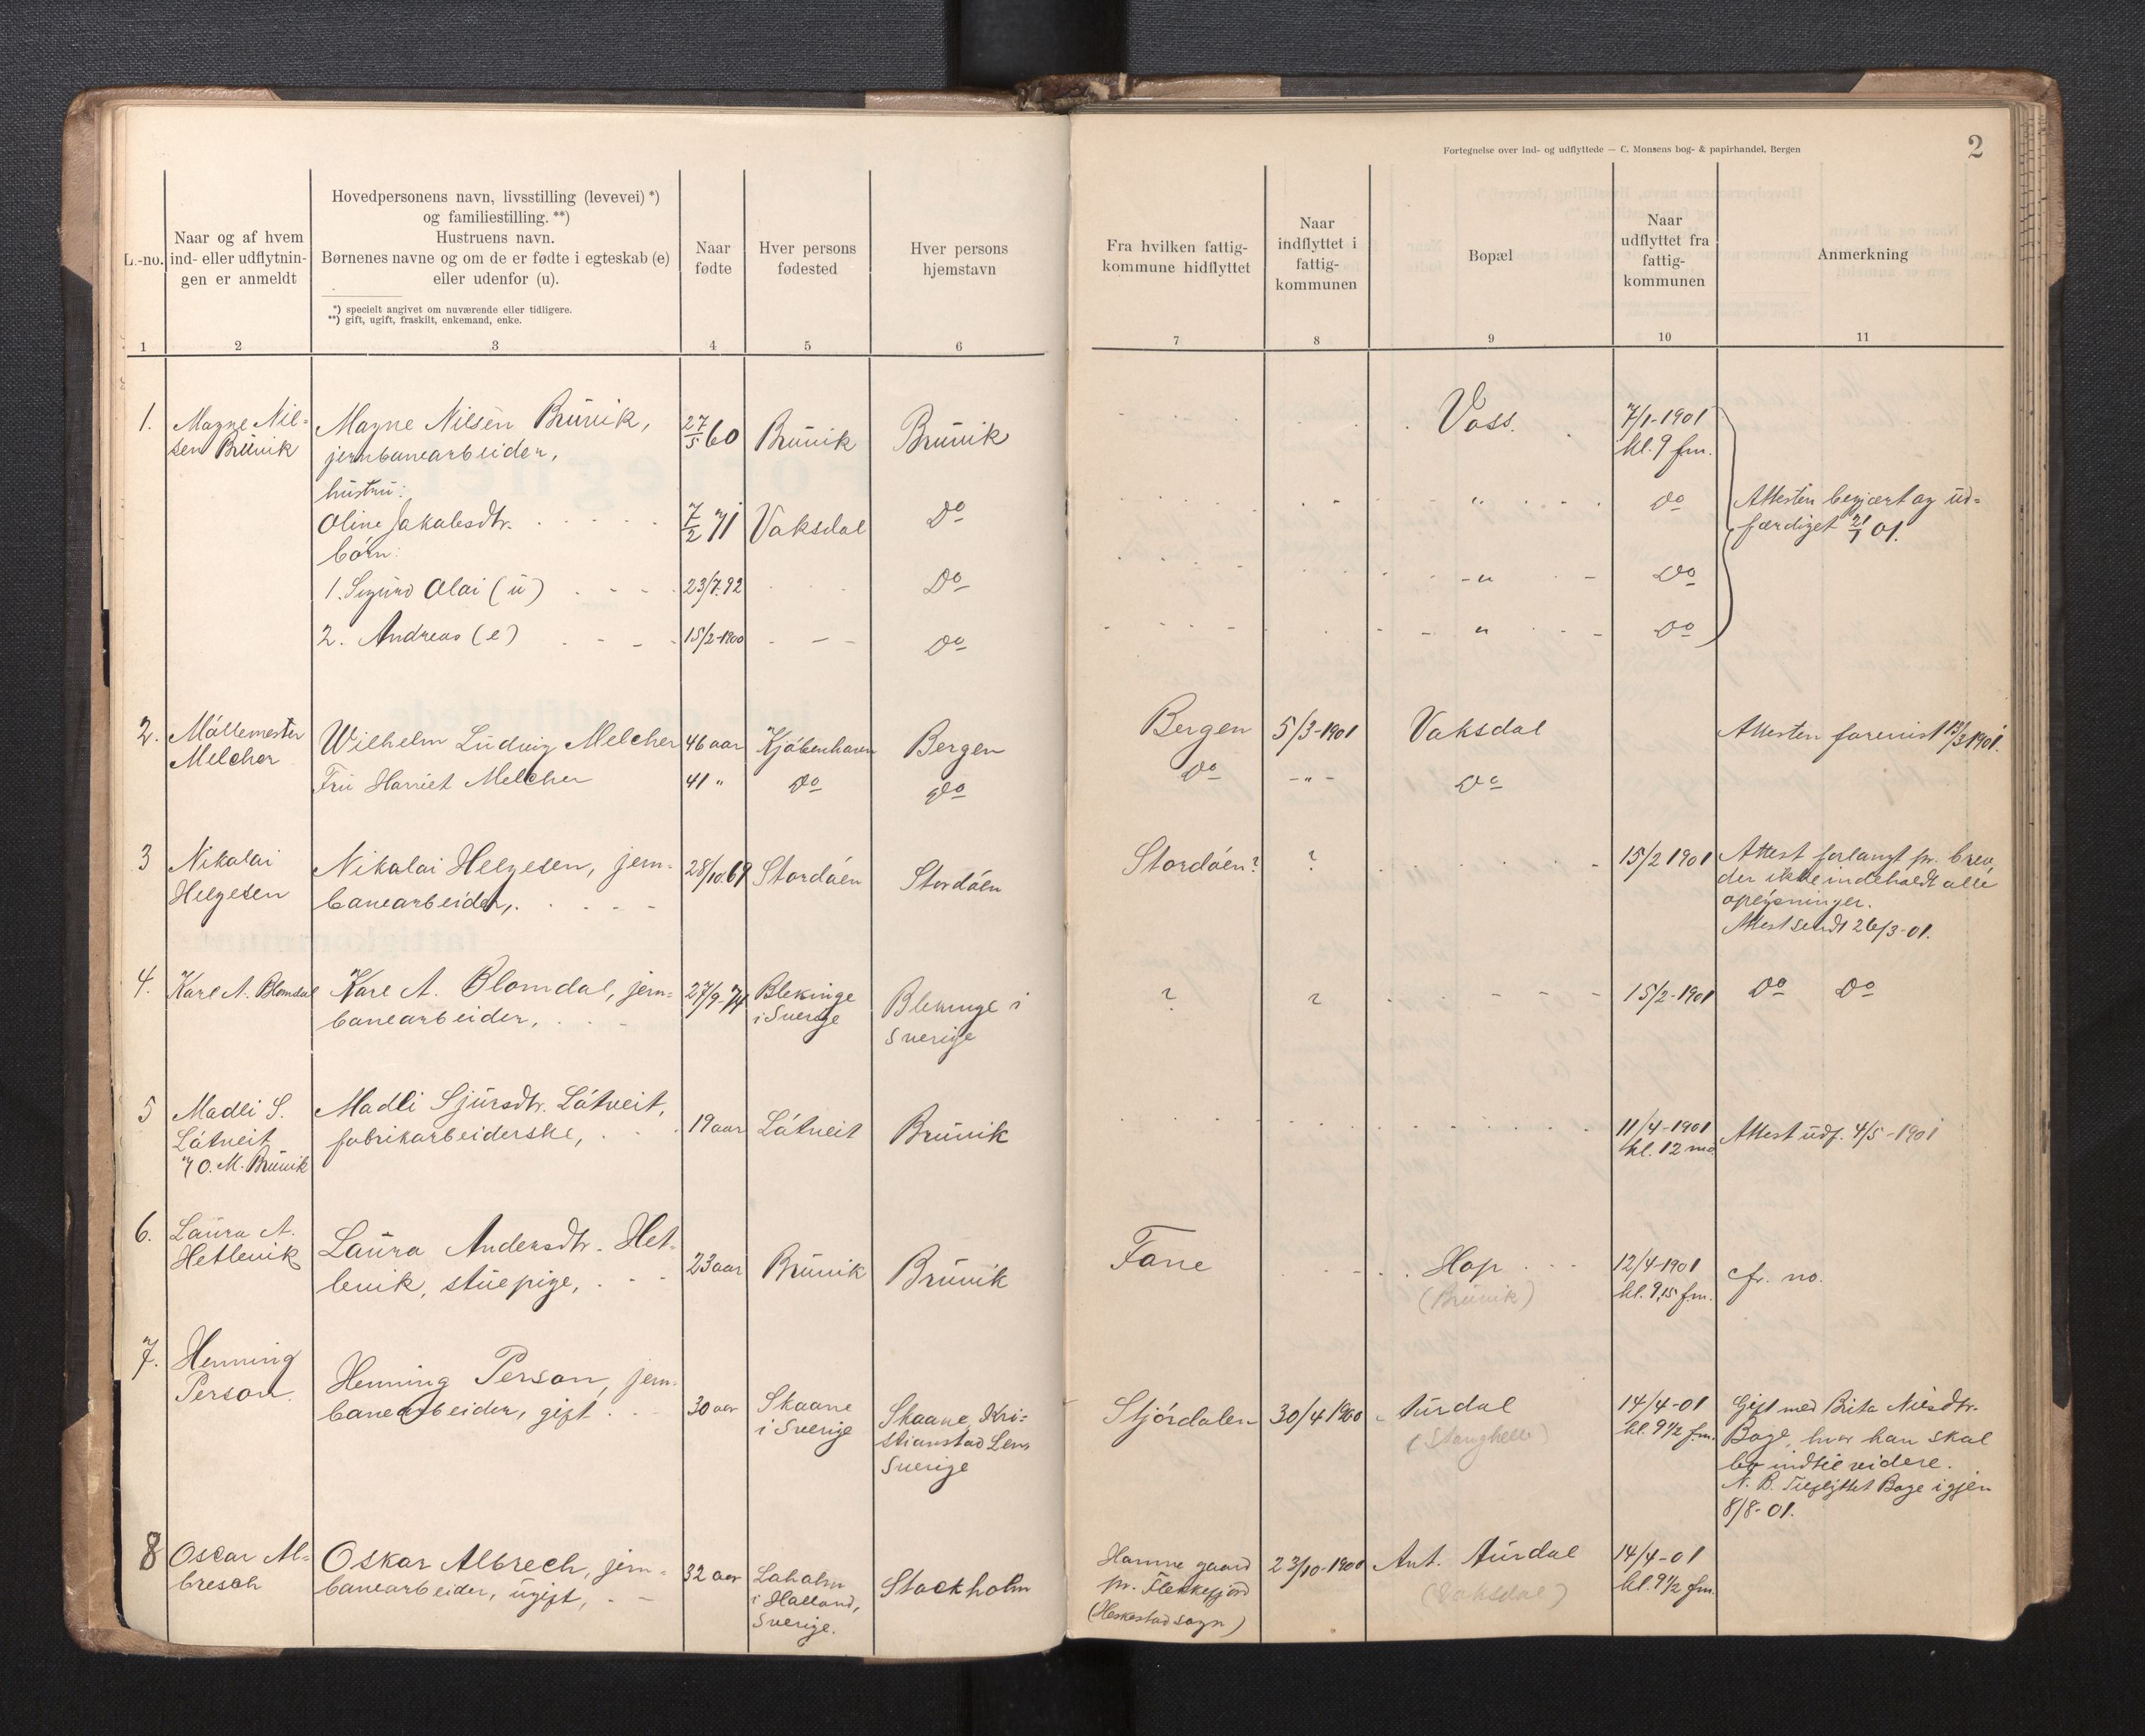 Fortegnelse over ind- og udflyttede — C. Monsens bog- & papirhandel, Bergen
2
L.-no.
Naar og af hvem
ind- eller udflytnin-
gen er anmeldt
Hovedpersonens navn, livsstilling (levevei) *)
og familiestilling. **)
Hustruens navn.
Børnenes navne og om de er fødte i egteskab (e)
eller udenfor (u).
*) specielt angivet om nuværende eller tidligere.
**) gift, ugift, fraskilt, enkemand, enke.
Naar
fødte
Hver persons
fødested
Hver persons
hjemstavn
Fra hvilken fattig-
kommune hidflyttet
Naar
indflyttet i
fattig-
kommunen
Bopæl
Naar
udflyttet fra
fattig-
kommunen
Anmerkning
1 2 3 4 5 6 7 8 9 10 11
1.
Magne Nil-
sen Brüvik
Magne Nilsen Brüvik,
jernbanearbeider,
hustrü:
Oline Jakobsdtr.
børn:
1. Sigurd Olai (ü)
2. Andreas (e)
27/5 60
7/2 71
23/7.92
15/2-1900
Brüvik
Vaksdal
Brüvik
Do
Do
Do
Voss.
"
"
"
7/1-1901
kl. 9 fm.
Do
Do
Do
Attesten begjært og üd-
færdiget 21/1 01.
2.
Møllemester
Melcher
Wilhelm Lüdvig Melcher
Frü Harriet Melcher
46 aar
41 "
Kjøbenhavn
Do
Bergen
Do
Bergen
Do
5/3-1901
- " -
Vaksdal
Do
Attesten forevist 13/3 1901.
3
Nikolai
Helgesen
Nikolai Helgesen, jern-
banearbeider,
28/10.69
Stordøen
Stordøen
Stordøen?
?
15/2 1901
Attest forlangt pr. brev,
der ikke indeholdt alle
oplysninger.
Attest sendt 26/3-01.
4.
Karl A. Blomdal
Karl A. Blomdal, jern-
banearbeider,
27/9-74
Blekinge
i Sverige
Blekinge i
Sverige
?
?
15/2-1901
Do Do
5
Madli S.
Låtveit
v/ O. M. Brüvik
Madli Sjürsdtr. Låtveit,
fabrikarbeiderske,
19 aar
Låtveit
Brüvik
11/4-1901
kl. 12 md.
Attest üdf. 4/5-1901
6.
Laüra A.
Hetlevik
Laüra Andersdtr. Het-
levik, stüepige,
23 aar
Brüvik
Brüvik
Fane
Hop
(Brüvik)
12/4-1901
kl. 9,15 fm.
cfr. no.
7.
Henning
Person.
Henning Person, jern-
banearbeider, gift
30 aar
Skaane
i Sverige
Skaane, Kri-
stianstad Len,
Sverige
Stjórdalen
30/4 1900
Aürdal
(Stanghelle)
14/4-01
kl. 9 1/2 fm.
Gift med Brita Nilsdtr.
Boge, hvor han skal
bo indtil videre.
N. B. Tilflyttet Boge igjen
8/8-01.
8
Oscar Al-
bresch
Oskar Albrech, jern-
banearbeider, ügift,
32 aar
Laholm
i Halland,
Sverige.
Stockholm
Hamne gaard
pr. Flekkefjord
(Heskestad sogn)
23/10-1900
Ant. Aürdal
(Vaksdal)
14/4-01
kl. 9 1/2 fm.